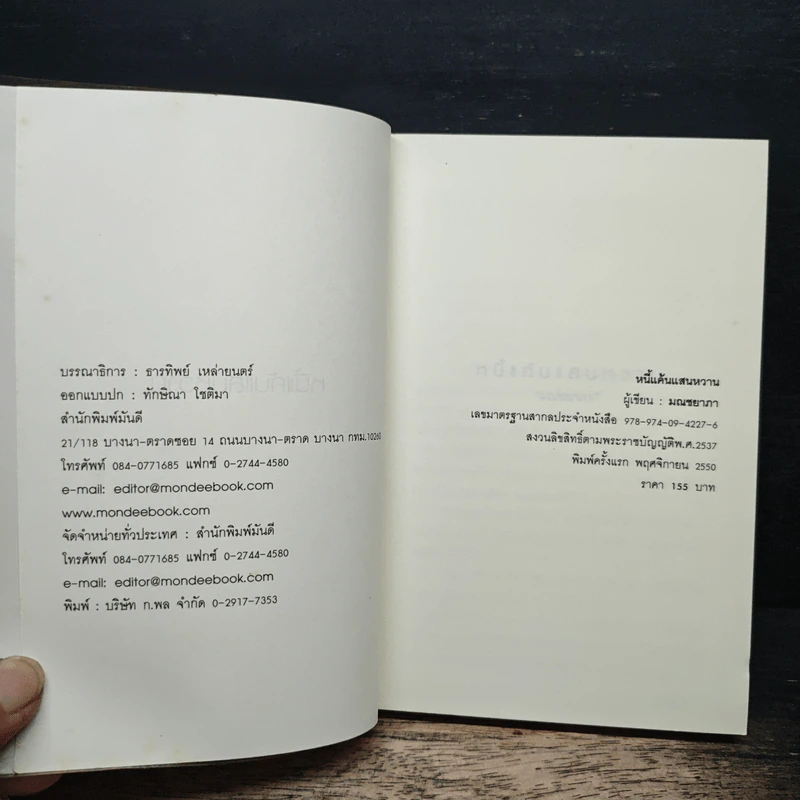 บรรณาธิการ : ธารทิพย์ เหล่ายนตร์
ออกแบบปก : ทักษิณา โชติมา
สำนักพิมพ์มันดี
21/118 บางนา-ตราดซอย 14 ถนนบางนา-ตราด บางนา กทม.10260
โทรศัพท์ 084-0771685 แฟกซ์ 0-2744-4580
e-mail: editor@mondeebook.com
www.mondeebook.com
จัดจำหน่ายทั่วประเทศ : สำนักพิมพ์มันดี
โทรศัพท์ 084-0771685 แฟกซ์ 0-2744-4580
e-mail: editor@mondeebook.com
พิมพ์ : บริษัท ก.พล จำกัด 0-2917-7353
หนี้แค้นแสนหวาน
ผู้เขียน : มณชยาภา
เลขมาตรฐานสากลประจำหนังสือ 978-974-09-4227-6
สงวนลิขสิทธิ์ตามพระราชบัญญัติพ.ศ.2537
พิมพ์ครั้งแรก พฤศจิกายน 2550
ราคา 155 บาท